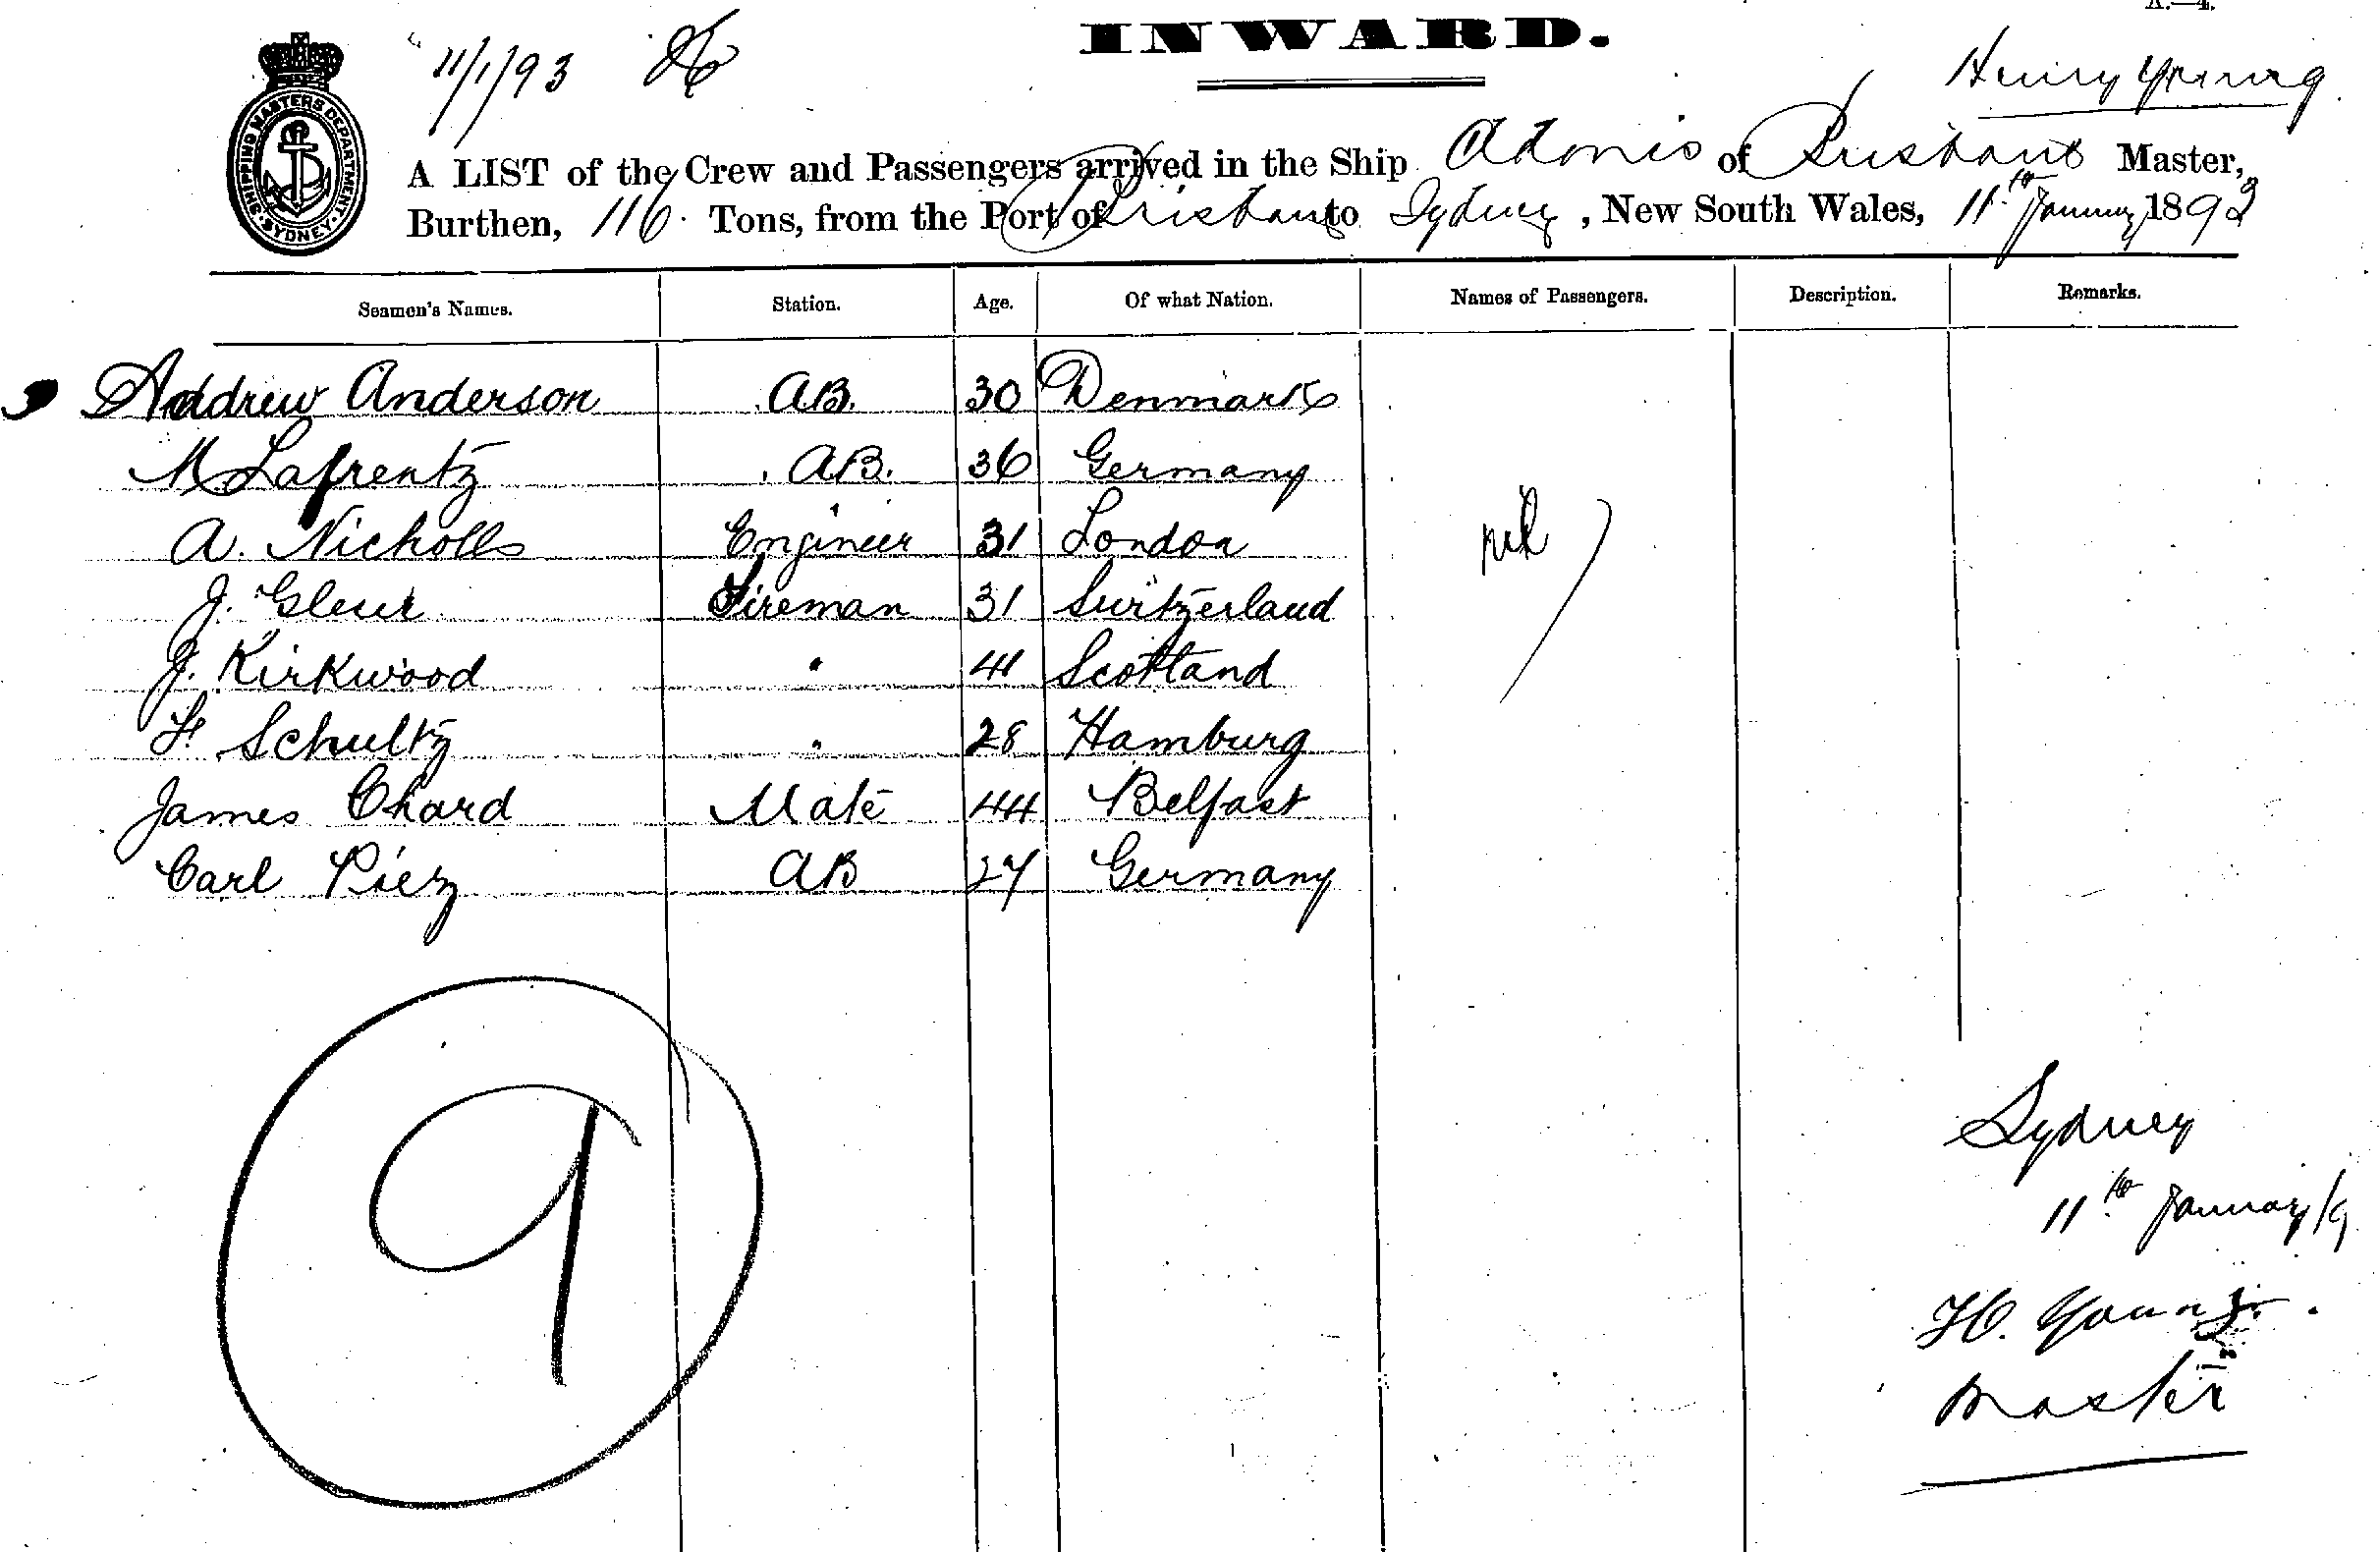 A.—4.
11/1/93
INWARD.
Henry Young
SHIPPING MASTERS DEPARTMENT · SYDNEY ·
A LIST of the Crew and Passengers arrived in the Ship Adonis of Brisbane Master,
Burthen, 116 Tons, from the Port of Brisbane to Sydney, New South Wales, 11th January 1893
Seamen's Names. Station. Age. Of what Nation. Names of Passengers. Description. Remarks.
Andrew Anderson A.B. 30 Denmark
M Lafrentz A.B. 36 Germany
A. Nicholls Engineer 31 London nil
J. Gleur Fireman 31 Switzerland
J. Kirkwood " 41 Scotland
F. Schultz " 28 Hamburg
James Chard Mate 44 Belfast
Carl Pierz AB 27 Germany
9
Sydney
11th January /9
H. Young.
Master